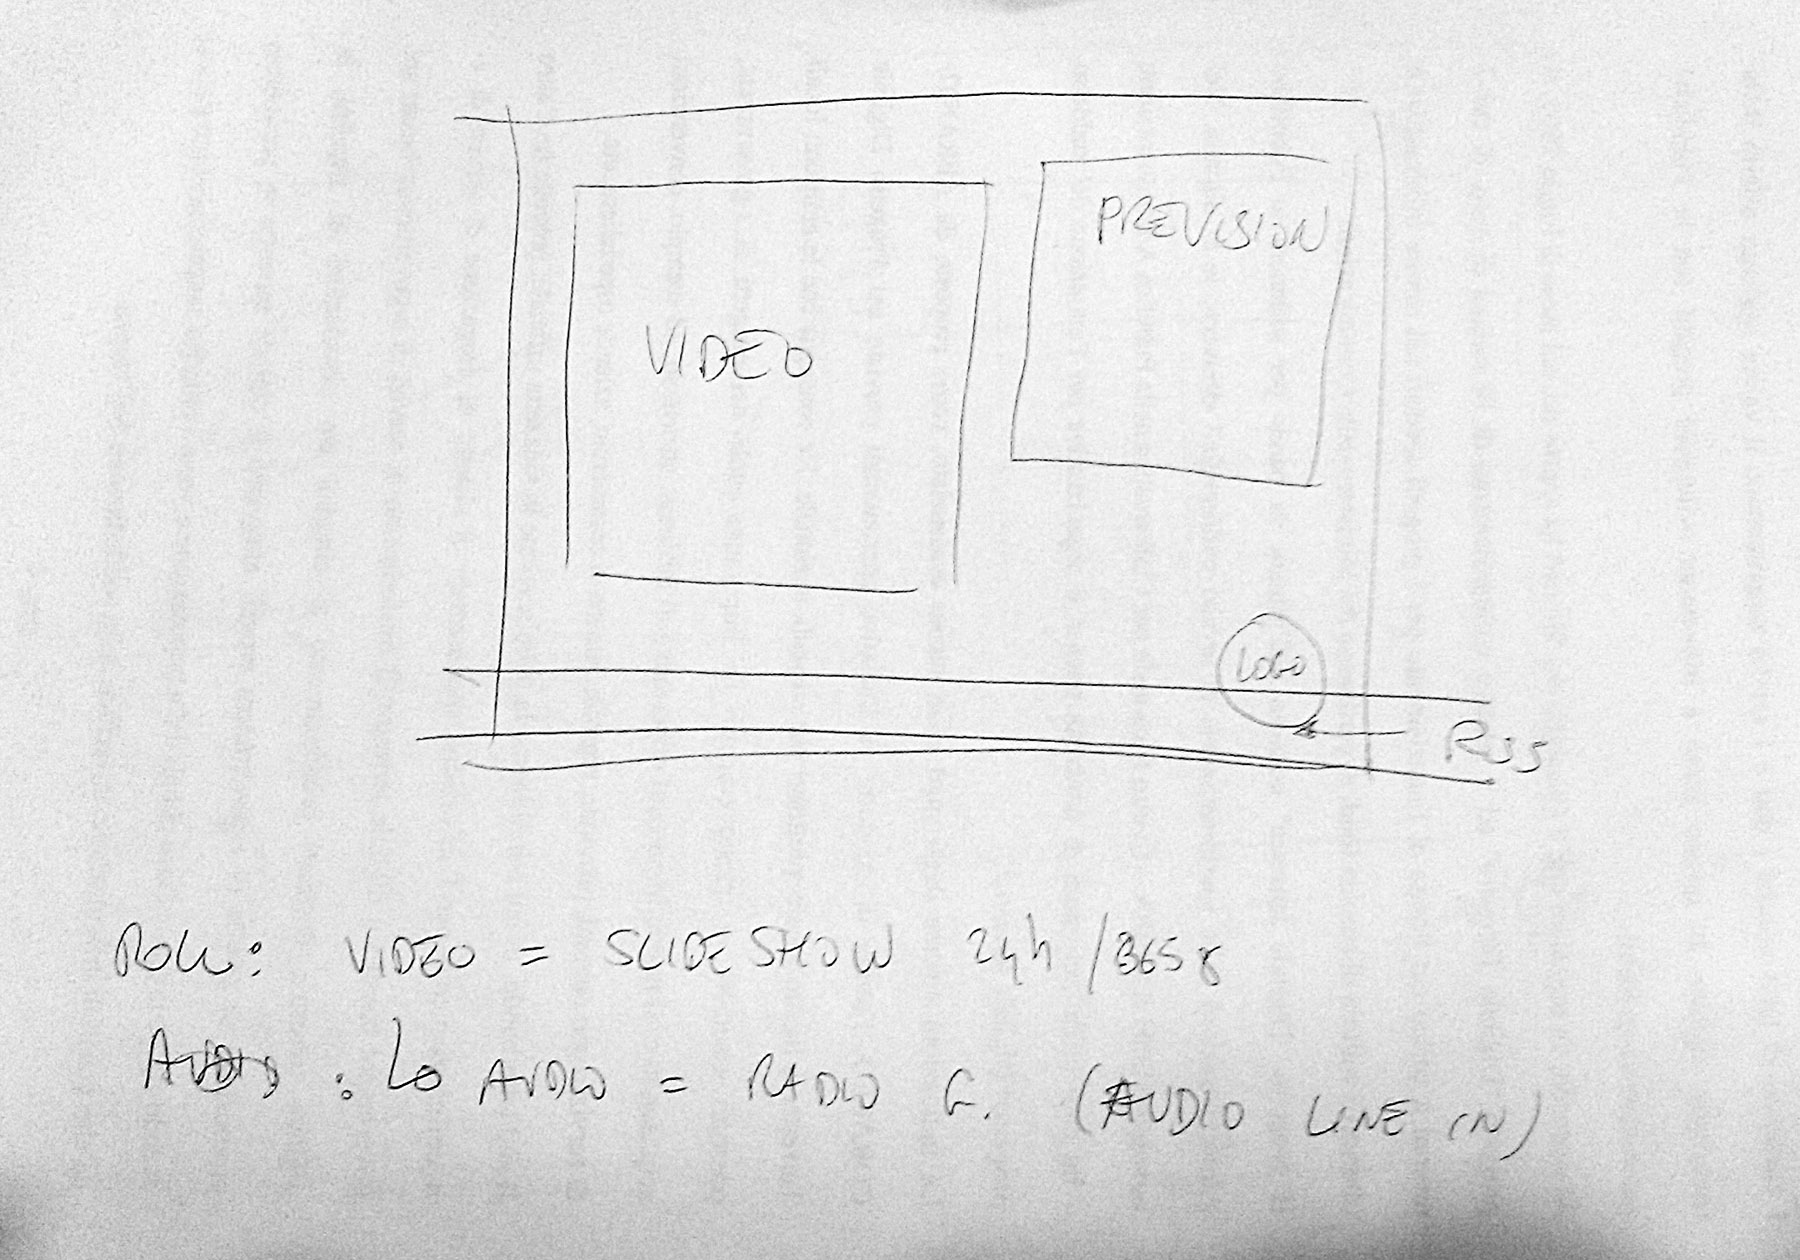 PREVISION
VIDEO
LOGO
RSS
ROLL: VIDEO = SLIDESHOW 24h / 365
AUDIO : Lo AUDIO = RADIO G. (AUDIO LINE IN)